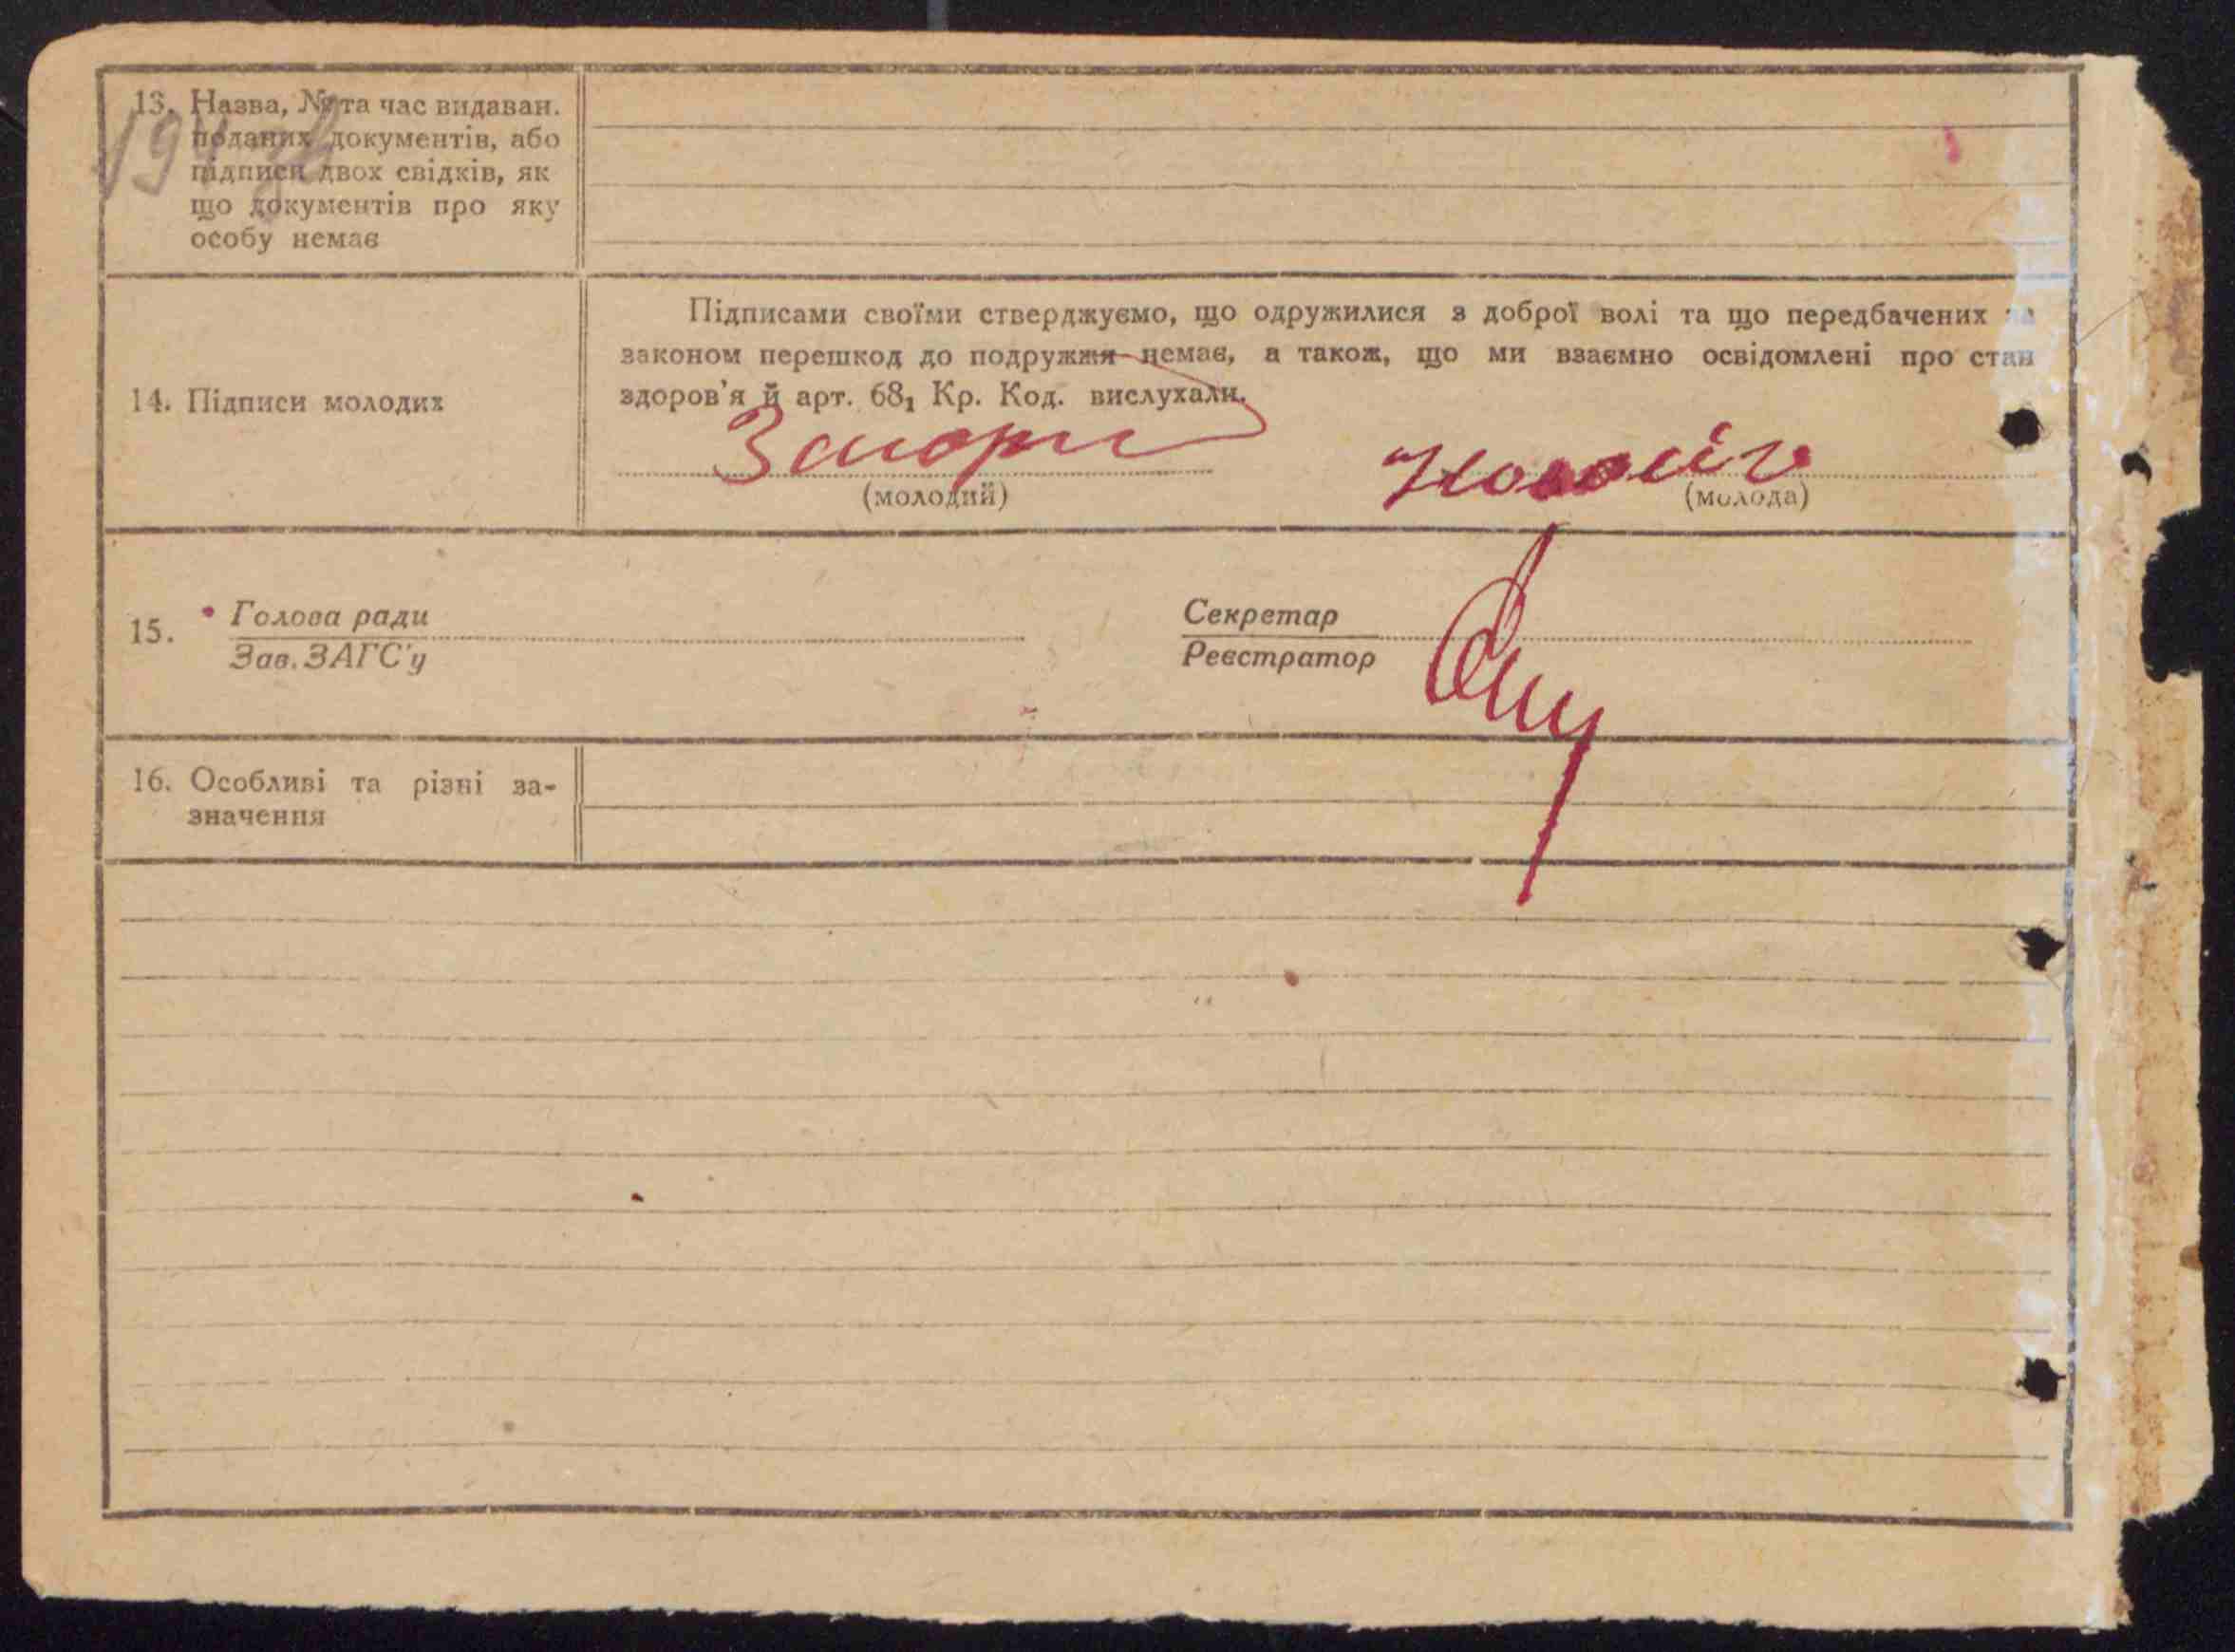 13. Назва, № та час видаван.
поданих документів, або
підписи двох свідків, як
що документів про яку
особу немає
Підписами своїми стверджуємо, що одружилися з доброї волі та що передбачених за
законом перешкод до подружжя немає, а також, що ми взаємно освідомлені про стан
14. Підписи молодих
здоров'я й арт. 68₁ Кр. Код. вислухали.
(молодий) (молода)
15. Голова ради
Зав. ЗАГС'у
Секретар
Реєстратор
16. Особливі та різні за-
значення